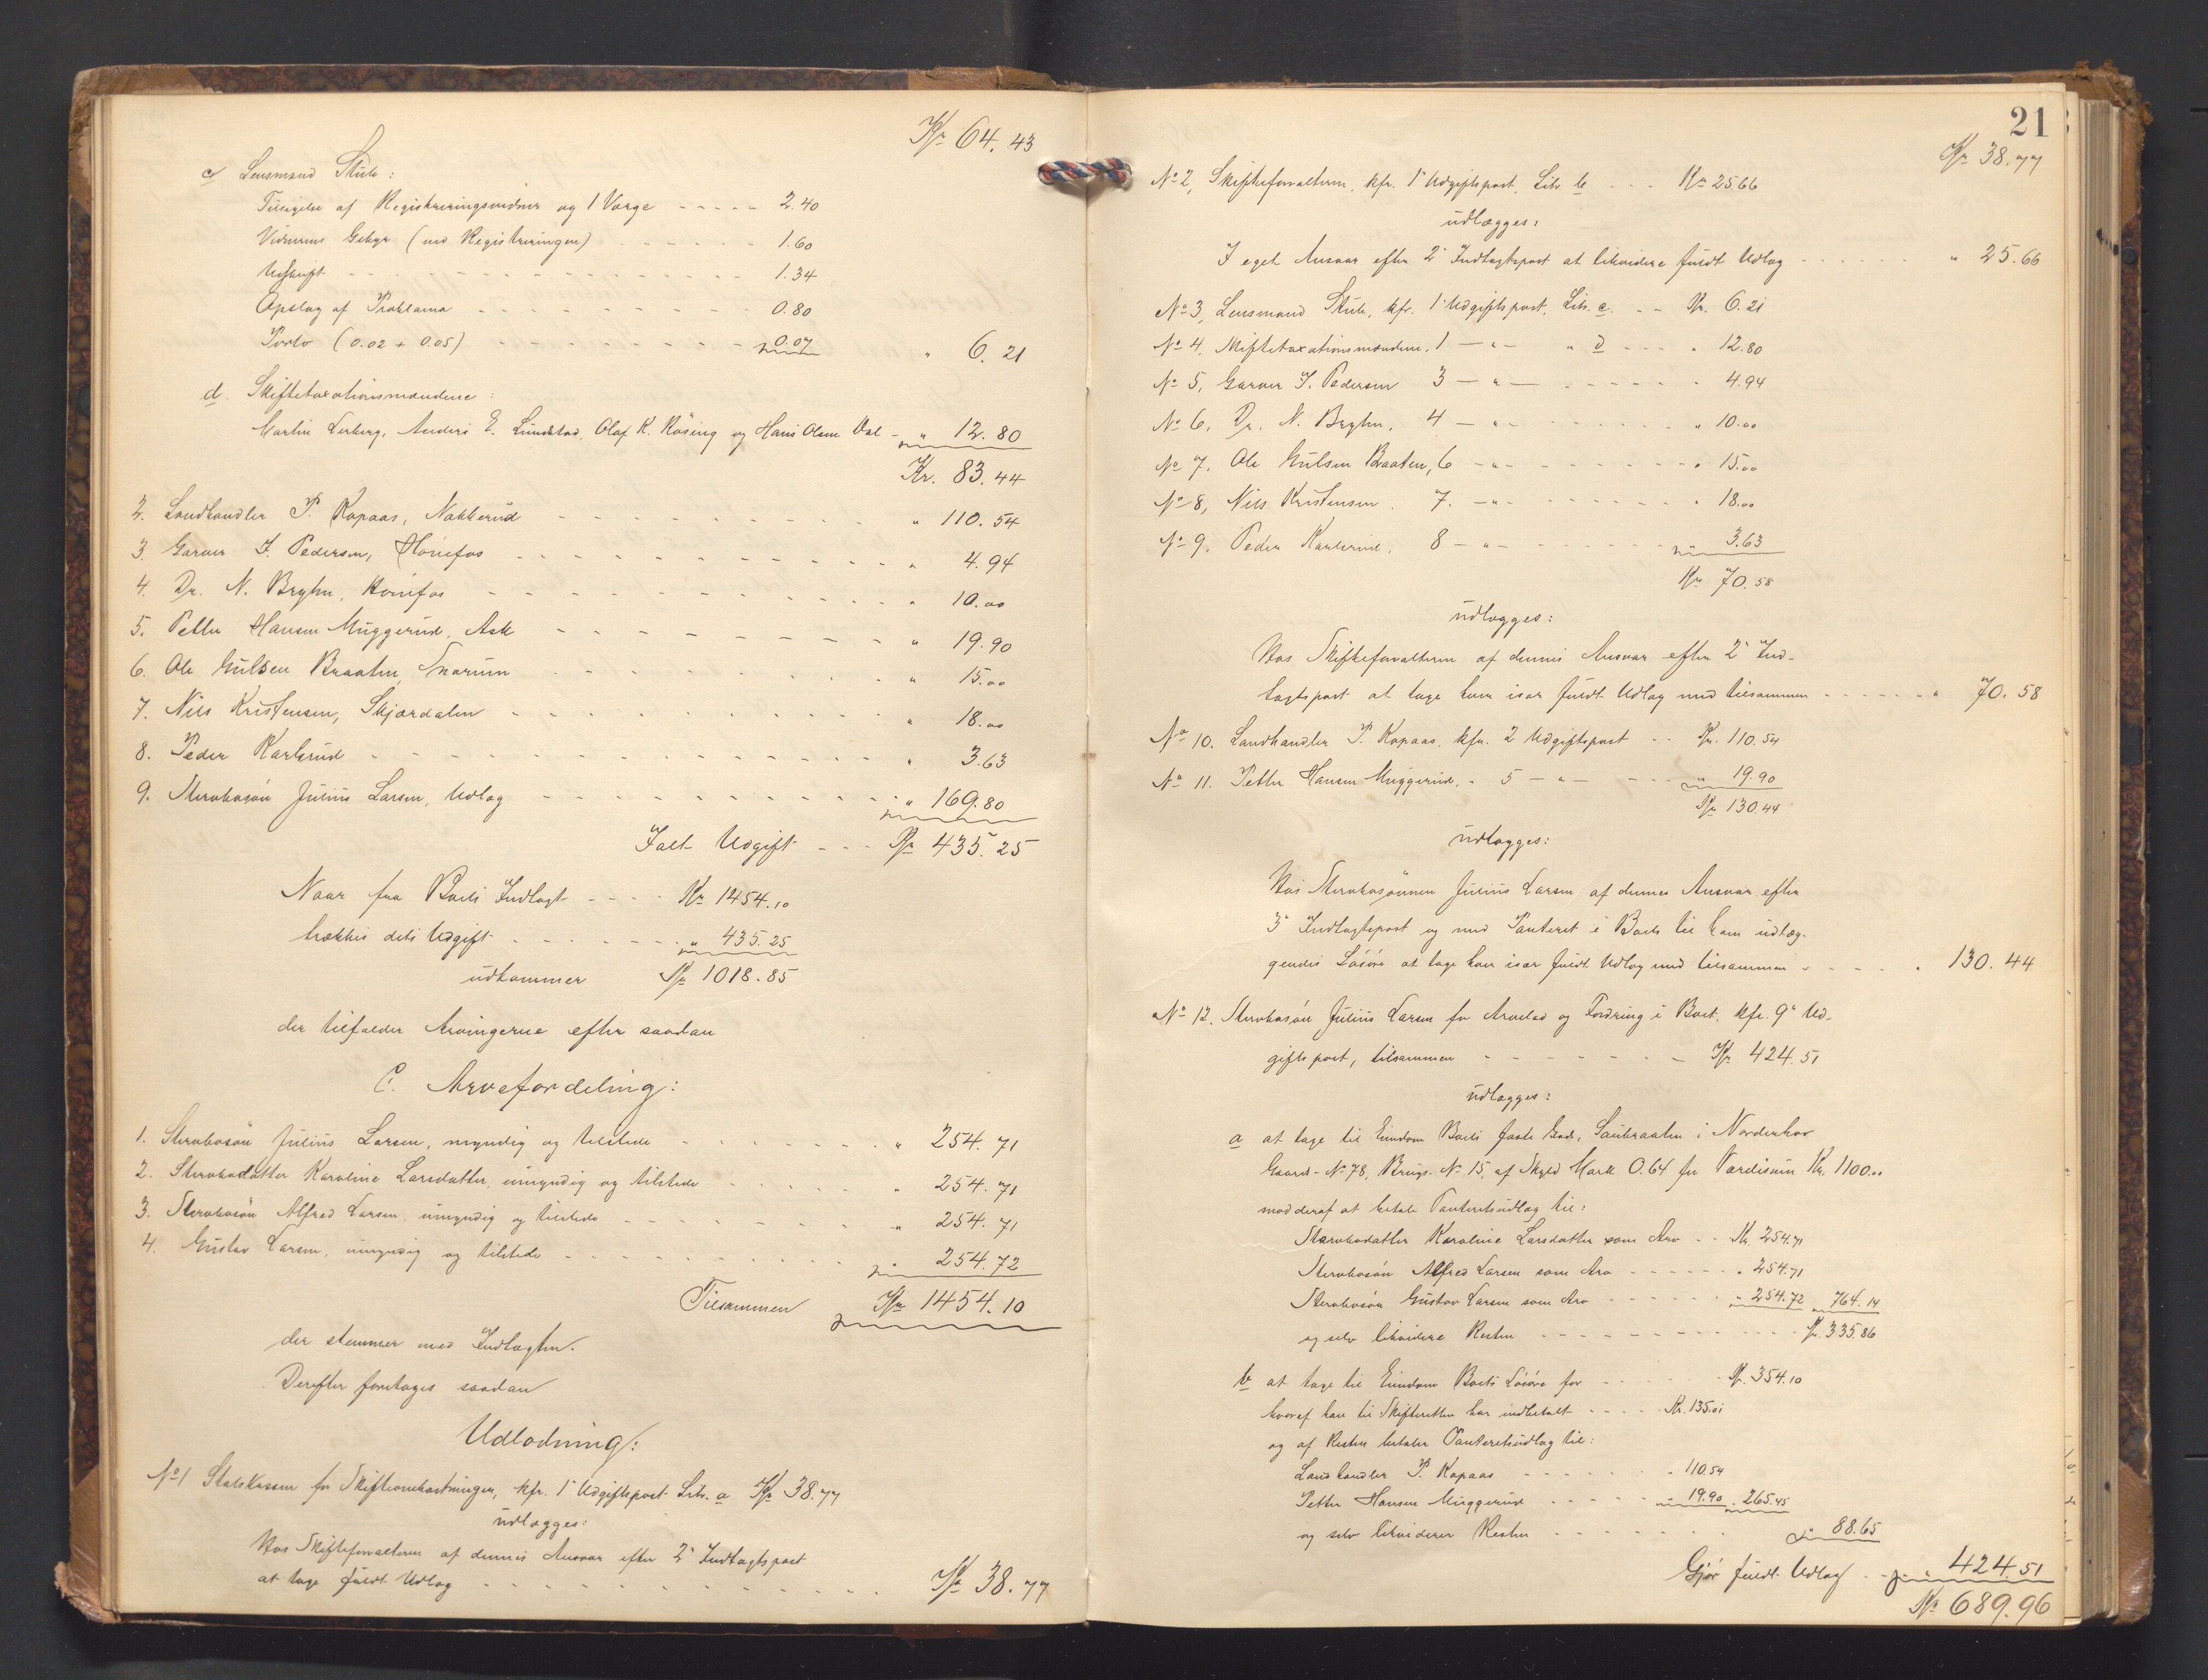 Kr 64.43
c) Lensmand Stub:
Tilsigelse af Registreringsvidner og 1 Værge - - - - - 2.40
Vidnernes Gebyr (ved Registreringen) - - - - - 1.60
Udskrift - - - - - 1.34
Opslag af Proklama - - - - - 0.80
Porto (0.02 + 0.05) - - - - - 0.07 " 6.21
d. Skiftetaxationsmændene:
Martin Lerberg, Anders E. Lundstad, Olaf K. Røsing og Hans Olsen - " 12.80
Kr. 83.44
2. Landhandler P. Kopaas, Nakkerud - - - - - " 110.54
3. Garver J. Pedersen, Hønefos - - - - - " 4.94
4. Dr. N. Bryhn, Hønefos - - - - - " 10.00
5. Petter Hansen Muggerud, Ask - - - - - " 19.90
6. Ole Gulsen Braaten, Snarum - - - - - " 15.00
7. Nils Kristensen, Skjærdalen - - - - - " 18.00
8. Peder Karlsrud - - - - - " 3.63
9. Stervbosøn Julius Larsen, Udlæg - - - - - " 169.80
Ialt Udgift - - - Kr 435.25
Naar fra Boets Indtægt - - - - Kr 1454.10
trækkes dets Udgift - - - - - " 435.25
udkommer Kr 1018.85
der tilfalder Arvingerne efter saadan
C. Arvefordeling:
1. Stervbosøn Julius Larsen, myndig og tilstede - - - - - " 254.71
2. Stervbodatter Karoline Larsdatter, umyndig og tilstede - - - - - " 254.71
3. Stervbosøn Alfred Larsen, umyndig og tilstede - - - - - " 254.71
4. Gustav Larsen, umyndig og tilstede - - - - - " 254.72
Tilsammen Kr 1454.10
der stemmer med Indtægten.
Derefter foretages saadan
Udlodning:
No 1 Statskassen for Skifteomkostninger, kfr. 1ste Udgiftspost Litr. a Kr 38.77
udlægges:
Hos Skifteforvalteren af dennes Ansvar efter 2' Indtægtspost
at tage fuldt Udlæg - - - - - Kr 38.77
21
Kr 38.77
No 2, Skifteforvalteren, kfr. 1' Udgiftspost, Litr. b - - - Kr 25.66
udlægges:
I eget Ansvar efter 2' Indtægtspost at likvidere fuldt Udlæg - - - - - " 25.66
No 3, Lensmand Stub, kfr. 1' Udgiftspost, Litr. c. - - Kr. 6.21
No 4, Skiftetaxationsmændene, 1 — " — " d - - - " 12.80
No 5, Garver J. Pedersen 3 — " — - - - - - " 4.94
No 6, Dr. N. Bryhn, 4 — " — - - - - - " 10.00
No 7, Ole Gulsen Braaten, 6 - " - - - - - - " 15.00
No 8, Nils Kristensen. 7. - " - - - - - - " 18.00
No 9, Peder Karlsrud, 8 - " - - - - - - " 3.63
Kr 70.58
udlægges:
Hos Skifteforvalteren af dennes Ansvar efter 2' Ind-
tægtspost at tage hver især fuldt Udlæg med tilsammen - - - - - " 70.58
No 10. Landhandler P. Kopaas, kfr. 2 Udgiftspost - - Kr. 110.54
No 11. Petter Hansen Muggerud, " 5 — " — - - - " 19.90
Kr 130.44
udlægges:
Hos Stervbosønnen Julius Larsen af dennes Ansvar efter
3' Indtægtspost og med Panteret i Boets til ham udlæg-
gendes Løsøre at tage hver især fuldt Udlæg med tilsammen - - - - " 130.44
No 12. Stervbosøn Julius Larsen for Arvelod og Fordring i Boet, kfr. 9' Ud-
giftspost, tilsammen - - - - - Kr 424.51
udlægges:
a at tage til Eiendom Boets faste Gods, Saubraaten i Norderhov
Gaards-No 78, Brugs-No 15, af Skyld Mark 0.64 for Værdisum Kr. 1100.00
mod deraf at betale Panteretsudlæg til:
Stervbodatter Karoline Larsdatter som Arv - - Kr. 254.71
Stervbosøn Alfred Larsen som Arv - - - - - " 254.71
Stervbosøn Gustav Larsen som Arv - - - - - " 254.72 " 764.14
og selv likvidere Resten - - - - - Kr. 335.86
b at tage til Eiendom Boets Løsøre for - - - - - Kr. 354.10
hvoraf han til Skifteretten har indbetalt - - - - Kr. 135.01
og af Resten betaler Panteretsudlæg til:
Landhandler P. Kopaas - - - - - " 110.54
Petter Hansen Muggerud - - - - - " 19.90 " 265.45
og selv likviderer Resten - - - - - " 88.65
Gjør fuldt Udlæg - - " 424.51
Kr 689.96